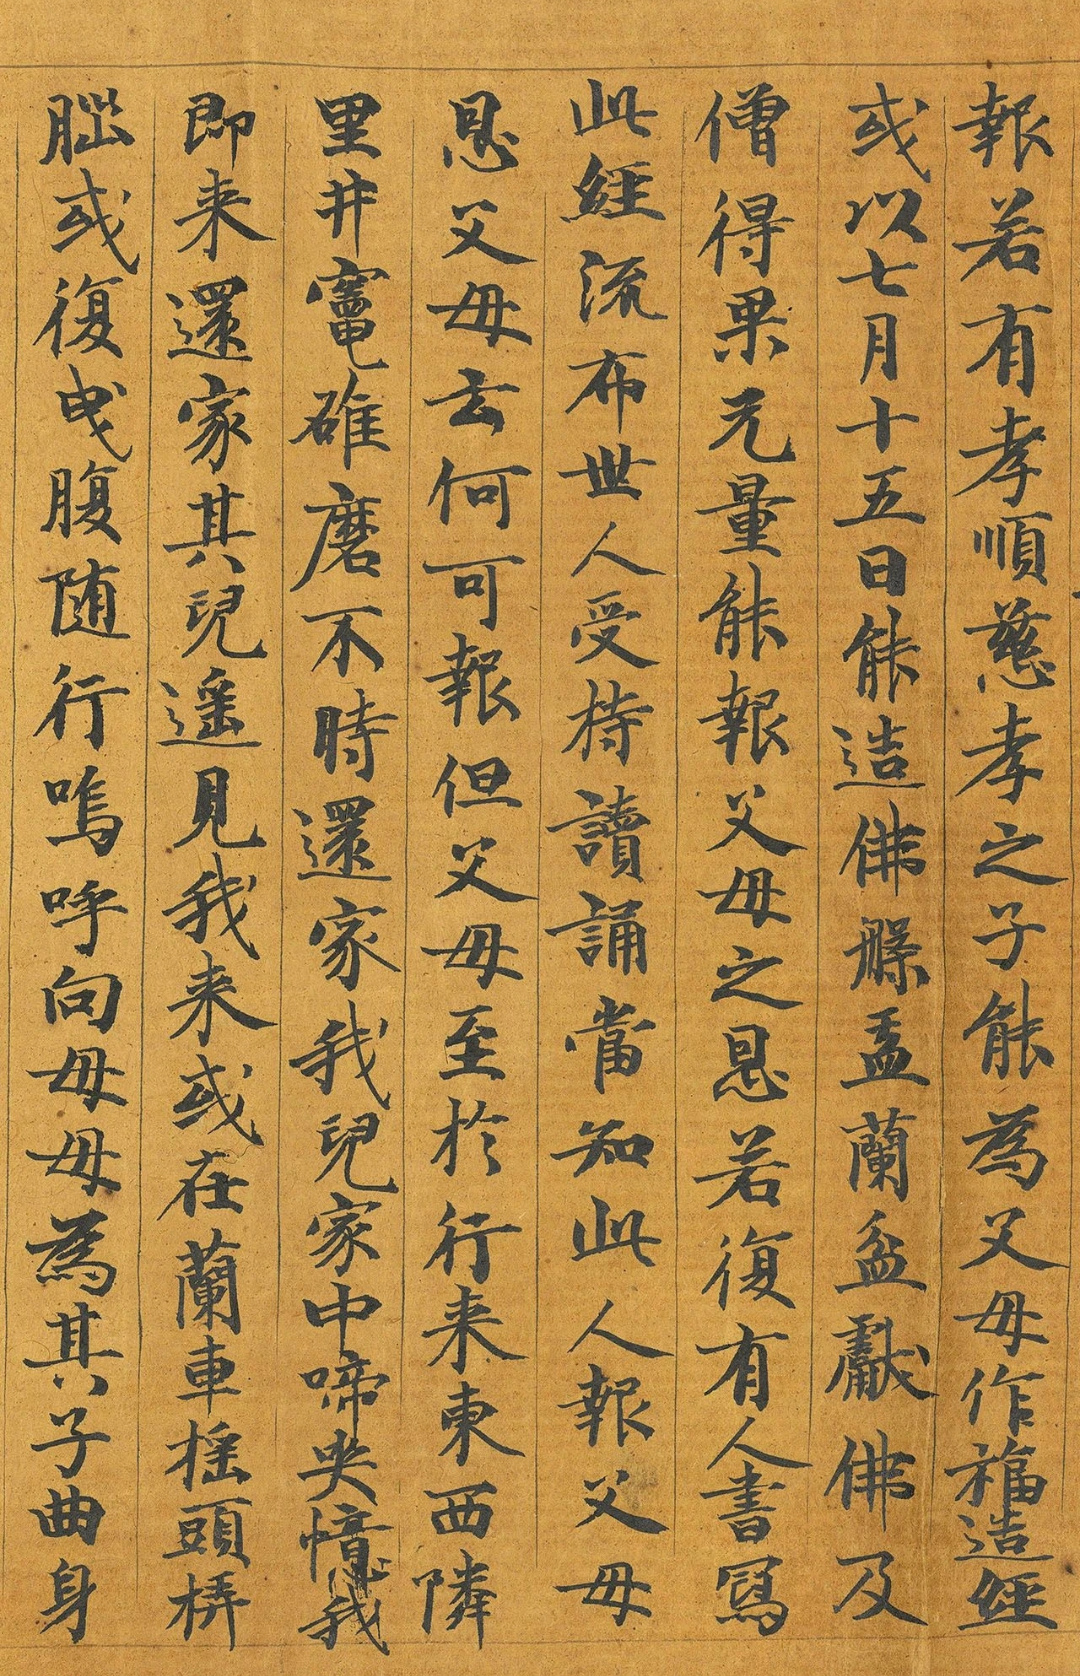 報若有孝順慈孝之子能為父母作福造經
或以七月十五日能造佛槃盂蘭盆獻佛及
僧得果无量能報父母之恩若復有人書寫
此經流布世人受持讀誦當知此人報父母
恩父母云何可報但父母至於行来東西隣
里井竈碓磨不時還家我兒家中啼哭憶我
即来還家其兒遥見我来或在蘭車摇頭挊
𦛁或復曳腹随行嗚呼向母母為其子曲身